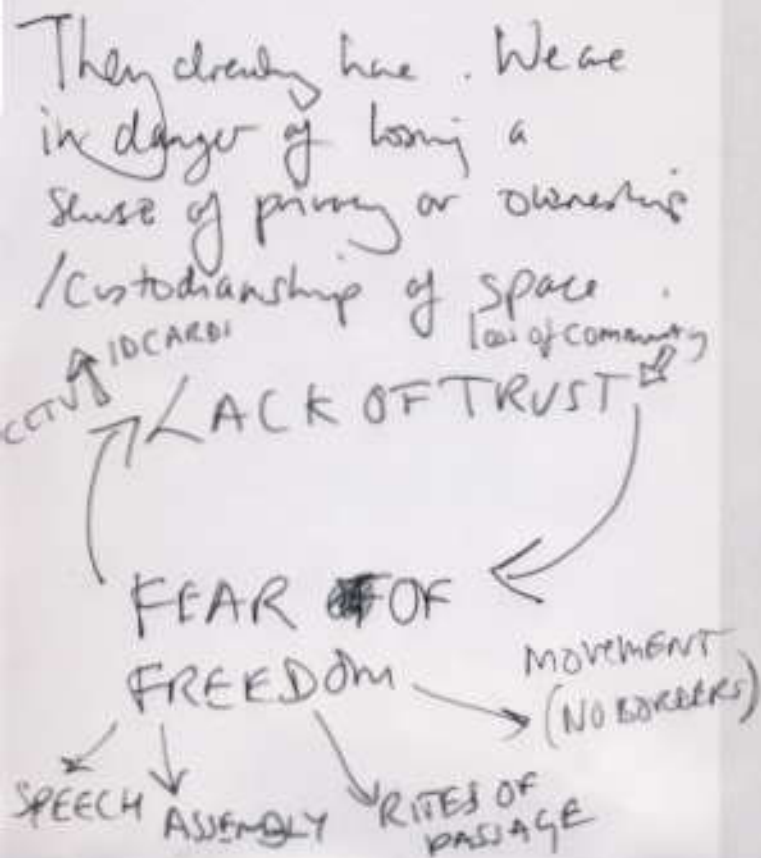 They already have. We are
in danger of loosing a
sense of privacy or ownership
/custodianship of space.
ID CARDS
loss of community
CCTV
LACK OF TRUST
FEAR OF
FREEDOM
MOVEMENT
(NO BORDERS)
SPEECH
ASSEMBLY
RITES OF
PASSAGE